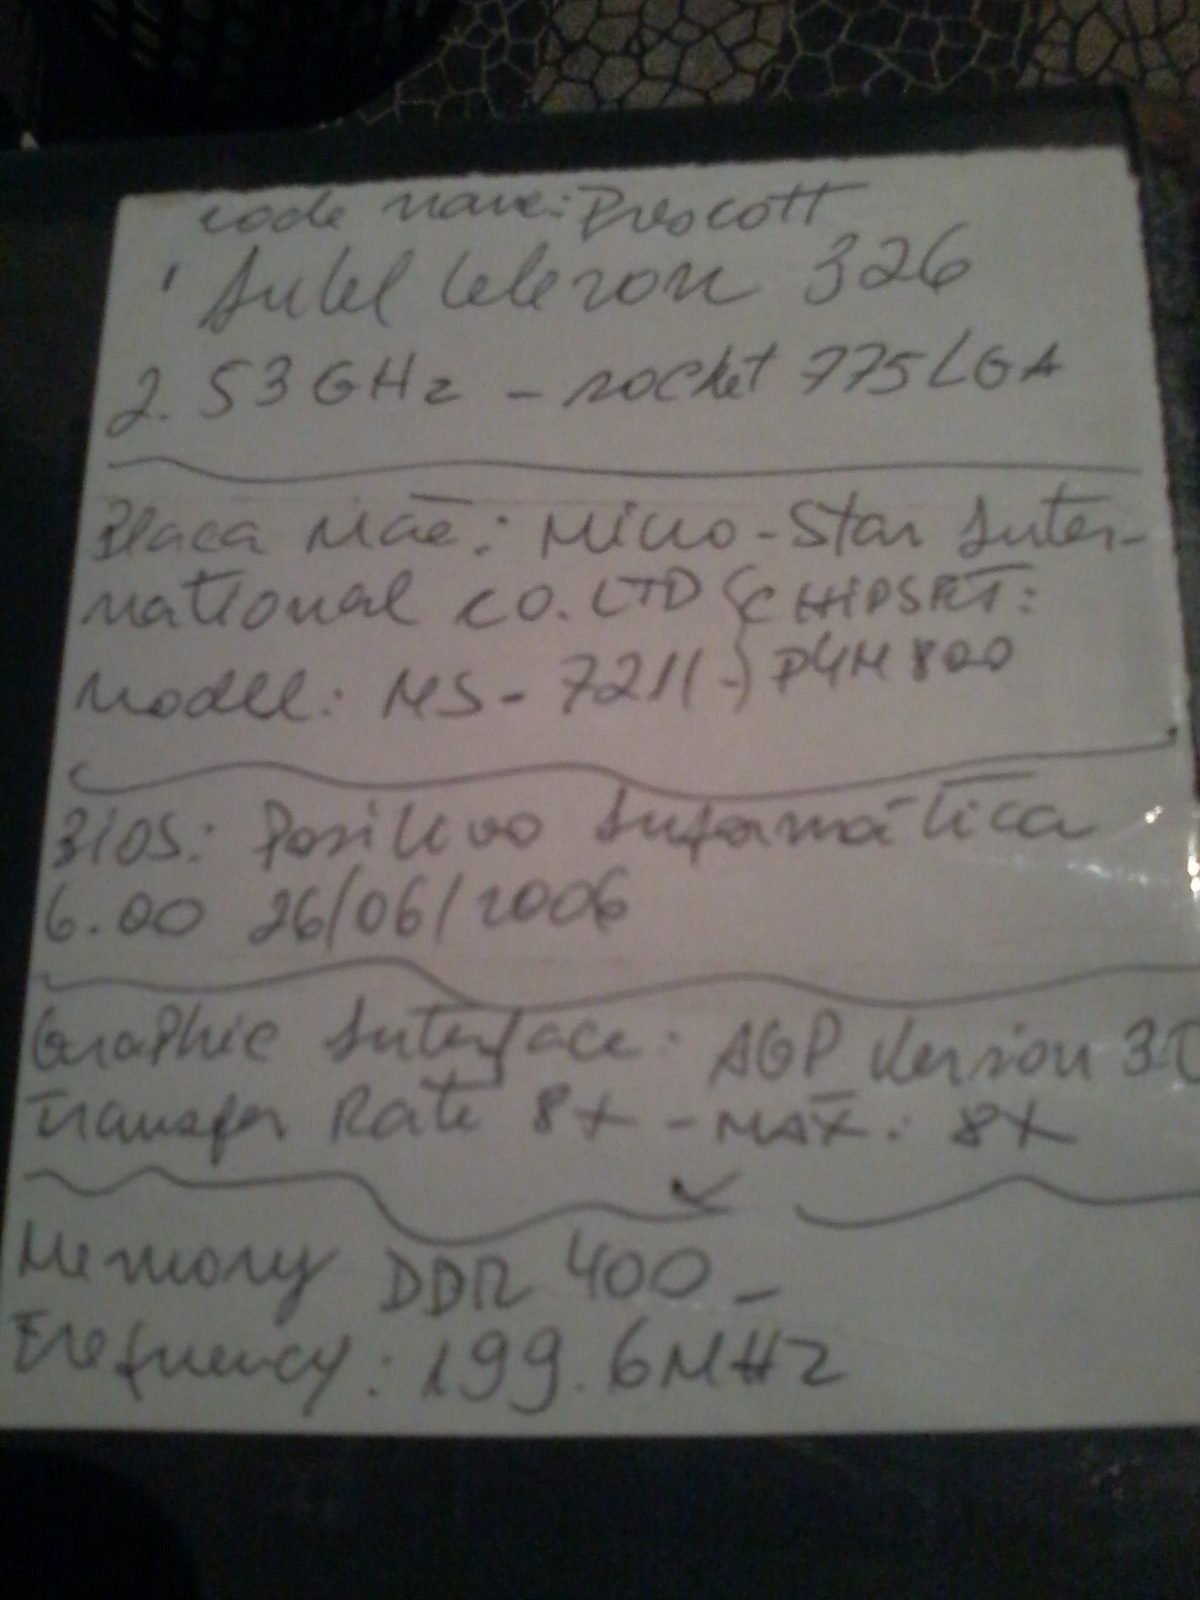 code name: Prescott
Intel Celeron 326
2.53GHz - socket 775LGA
Placa Mãe: Micro-Star Inter-
national CO. LTD CHIPSET:
Model: MS-7211 - P4M800
BIOS: Positivo Informática
6.00 26/06/2006
Graphic Interface: AGP Version 3.0
Transfer Rate 8X - MAX: 8X
Memory DDR 400 -
Frefuency: 199.6MHz